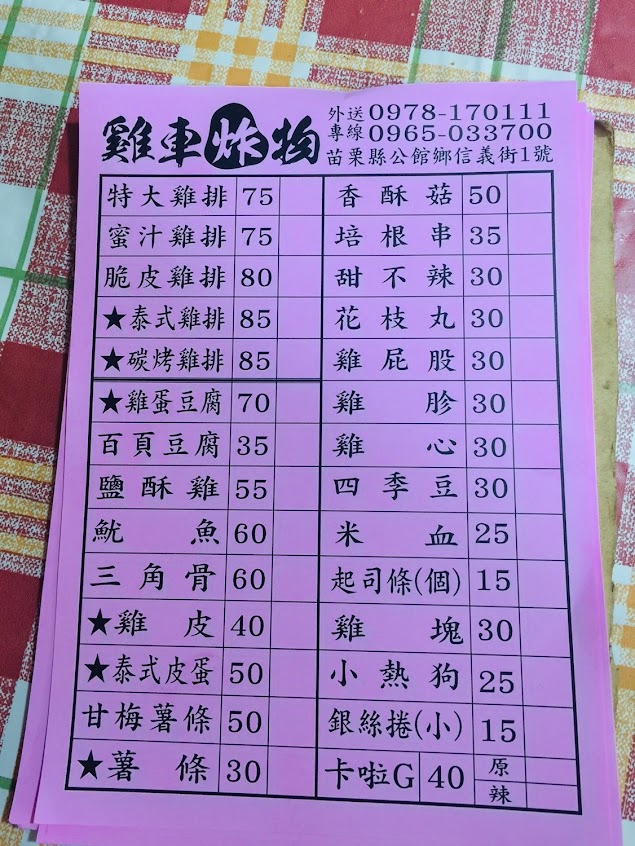 雞車炸物
外送專線 0978-170111
0965-033700
苗栗縣公館鄉信義街1號
特大雞排 75
蜜汁雞排 75
脆皮雞排 80
★泰式雞排 85
★碳烤雞排 85
★雞蛋豆腐 70
百頁豆腐 35
鹽酥雞 55
魷魚 60
三角骨 60
★雞皮 40
★泰式皮蛋 50
甘梅薯條 50
★薯條 30
香酥菇 50
培根串 35
甜不辣 30
花枝丸 30
雞屁股 30
雞胗 30
雞心 30
四季豆 30
米血 25
起司條(個) 15
雞塊 30
小熱狗 25
銀絲捲(小) 15
卡啦G 40 原
辣